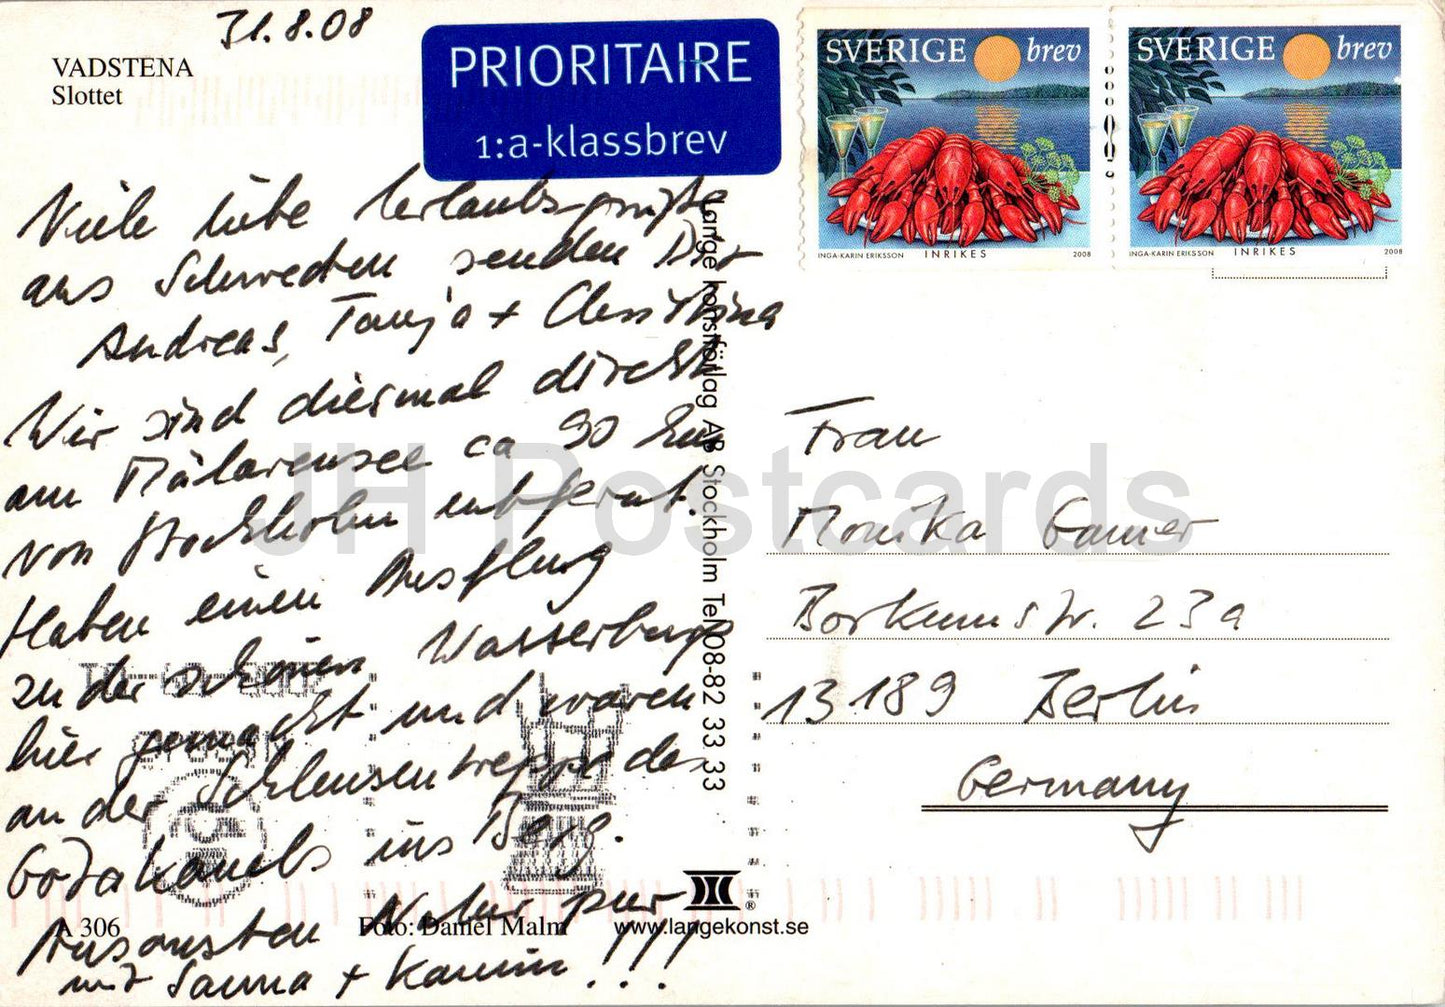 31.8.08
VADSTENA
Slottet
PRIORITAIRE
1:a-klassbrev
SVERIGE brev
INGA-KARIN ERIKSSON INRIKES 2008
SVERIGE brev
INGA-KARIN ERIKSSON INRIKES 2008
Viele liebe Urlaubsgrüße
aus Schweden senden Dir
Andreas, Tanja + Christina
Wir sind diesmal direkt
am Mälarensee ca 90 km
von Stockholm entfernt.
Haben einen Ausflug
zu der schönen Wasserburg
hier gemacht und waren
an der Schleusentreppe des
Götakanals ins Berg.
Ansonsten Natur pur
mit Sauna + Kamin !!!
Lange konstförlag AB Stockholm Tel 08-82 33 33
Frau
Monika
Borkumstr. 23a
13189 Berlin
Germany
A 306
Foto: Daniel Malm
www.langekonst.se
JH Postcards